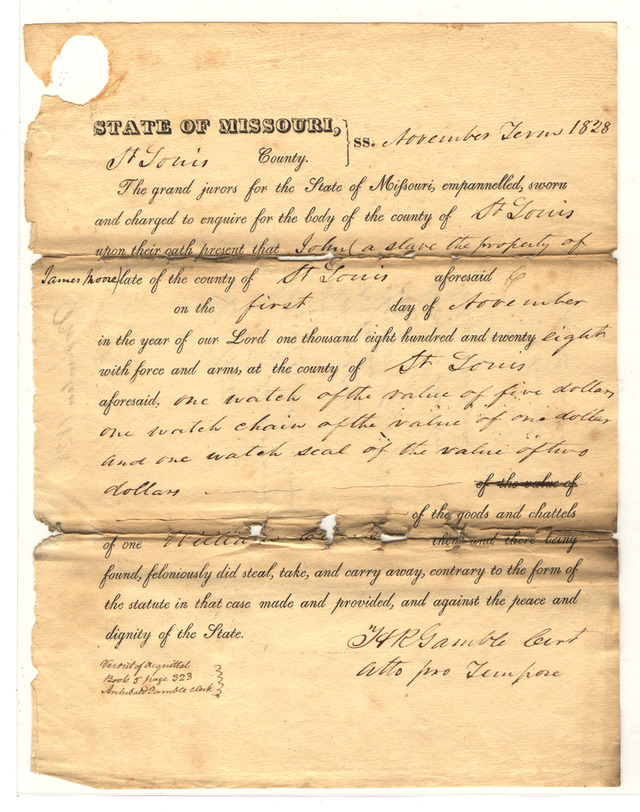 STATE OF MISSOURI, } ss. November Term 1828
St Louis County.
The grand jurors for the State of Missouri, empannelled, sworn
and charged to enquire for the body of the county of St Louis
upon their oath present that John (a slave the property of
James Moore) late of the county of St Louis aforesaid
on the first day of November
in the year of our Lord one thousand eight hundred and twenty eight
with force and arms, at the county of St Louis
aforesaid, one watch of the value of five dollars
one watch chain of the value of one dollar
and one watch seal of the value of two
dollars of the value of
of the goods and chattels
of one William then and there being
found, feloniously did steal, take, and carry away, contrary to the form of
the statute in that case made and provided, and against the peace and
dignity of the State.
H R Gamble Cirt
Atto pro Tempore
Verdict of Acquittal
Book 5 page 323
Archibald Gamble Clerk